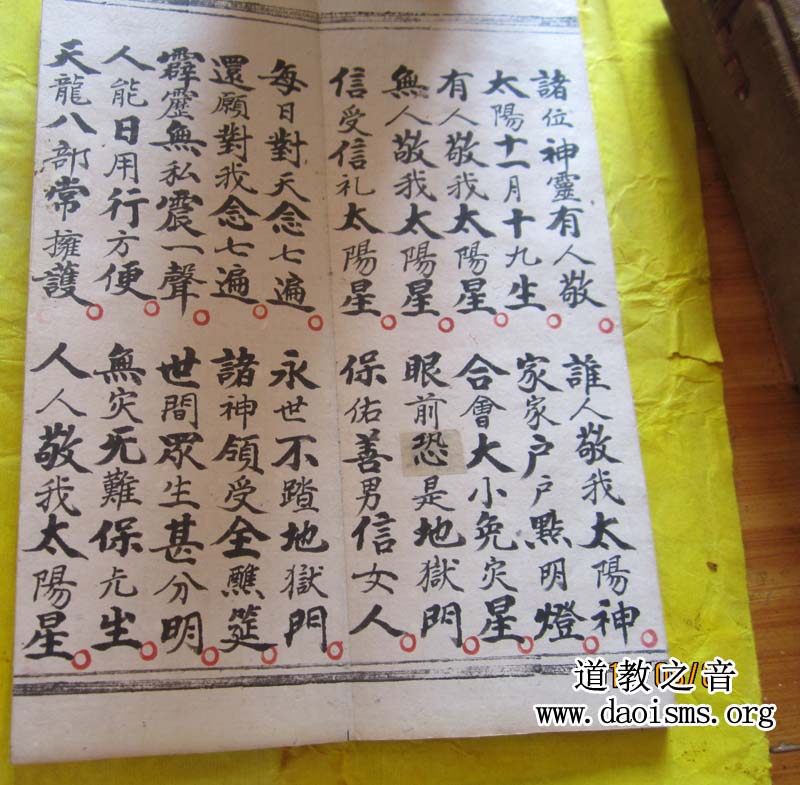 諸位神靈有人敬 誰人敬我太陽神
太陽十一月十九生 家家户户點明燈
有人敬我太陽星 合會大小免灾星
無人敬我太陽星 眼前恐是地獄門
信受信礼太陽星 保佑善男信女人
每日對天念七遍 永世不踏地獄門
還願對我念七遍 諸神領受全醮筵
霹靂無私震一聲 世間眾生甚分明
人能日用行方便 無灾无難保仧生
天龍八部常擁護 人人敬我太陽星
道教之音
www.daoisms.org